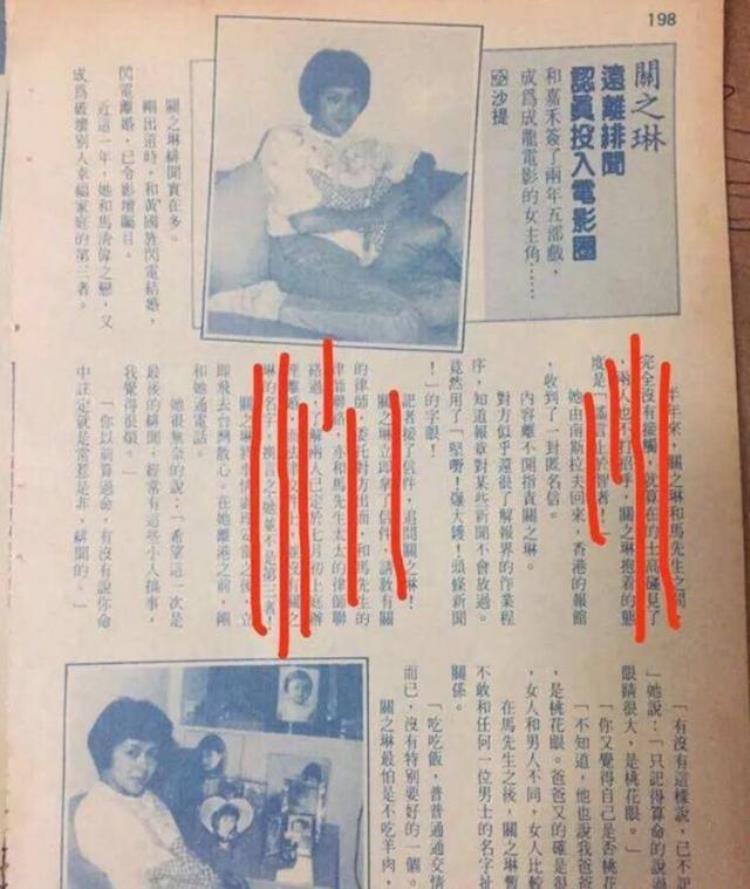 198
關之琳
遠離緋聞
認真投入電影圈
和嘉禾簽了兩年五部戲，
成爲成龍電影的女主角……
沙提
關之琳緋聞實在多。
剛出道時，和黃國閃電結婚，
閃電離婚，已令影壇矚目。
近這一年，她和馬清偉之戀，又
成爲破壞別人幸福家庭的第三者。
半年來，關之琳和馬先生之間，
完全沒有接觸，就算在的士高碰見了
，兩人也不打招呼，關之琳抱着的態
度是「謠言止於智者！」
她由南斯拉夫回來，香港的報館
，收到了一封匿名信。
內容離不開指責關之琳。
對方似乎還很了解報界的作業程
序，知道報章對某些新聞不會放過。
竟然用了「堅嘢！爆大鑊！頭條新聞
！」的字眼！
記者接了信件，追問關之琳！
關之琳立即拿了信件，請教有關
的律師，委託對方出面，和馬先生的
律師聯絡，亦和馬先生太太的律師聯
絡過，了解兩人已定於七月初上庭辦
理離婚，而法律文件上，並沒有關之
琳的名字，換言之，她並不是第三者！
關之琳將事情處理妥當之後，立
即飛去台灣散心。在她離港之前，剛
和她通電話。
她很無奈的說：「希望這一次是
最後的緋聞，經常有這些小人搞事，
我覺得很煩。」
「你以前算過命，有沒有說你命
中註定就是常惹是非，緋聞的。」
「有沒有這樣說，已不
」她說：「只記得算命的說
眼睛很大，是桃花眼。」
「你又覺得自己是否桃花
「不知道，他也說我爸爸
，是桃花眼。爸爸又的確是很
，女人和男人不同，女人比較
在馬先生之後，關之琳暫
不敢和任何一位男士的名字扯
關係。
「吃吃飯，普普通通交情
而已，沒有特別要好的一個。
關之琳最怕是不吃羊肉，